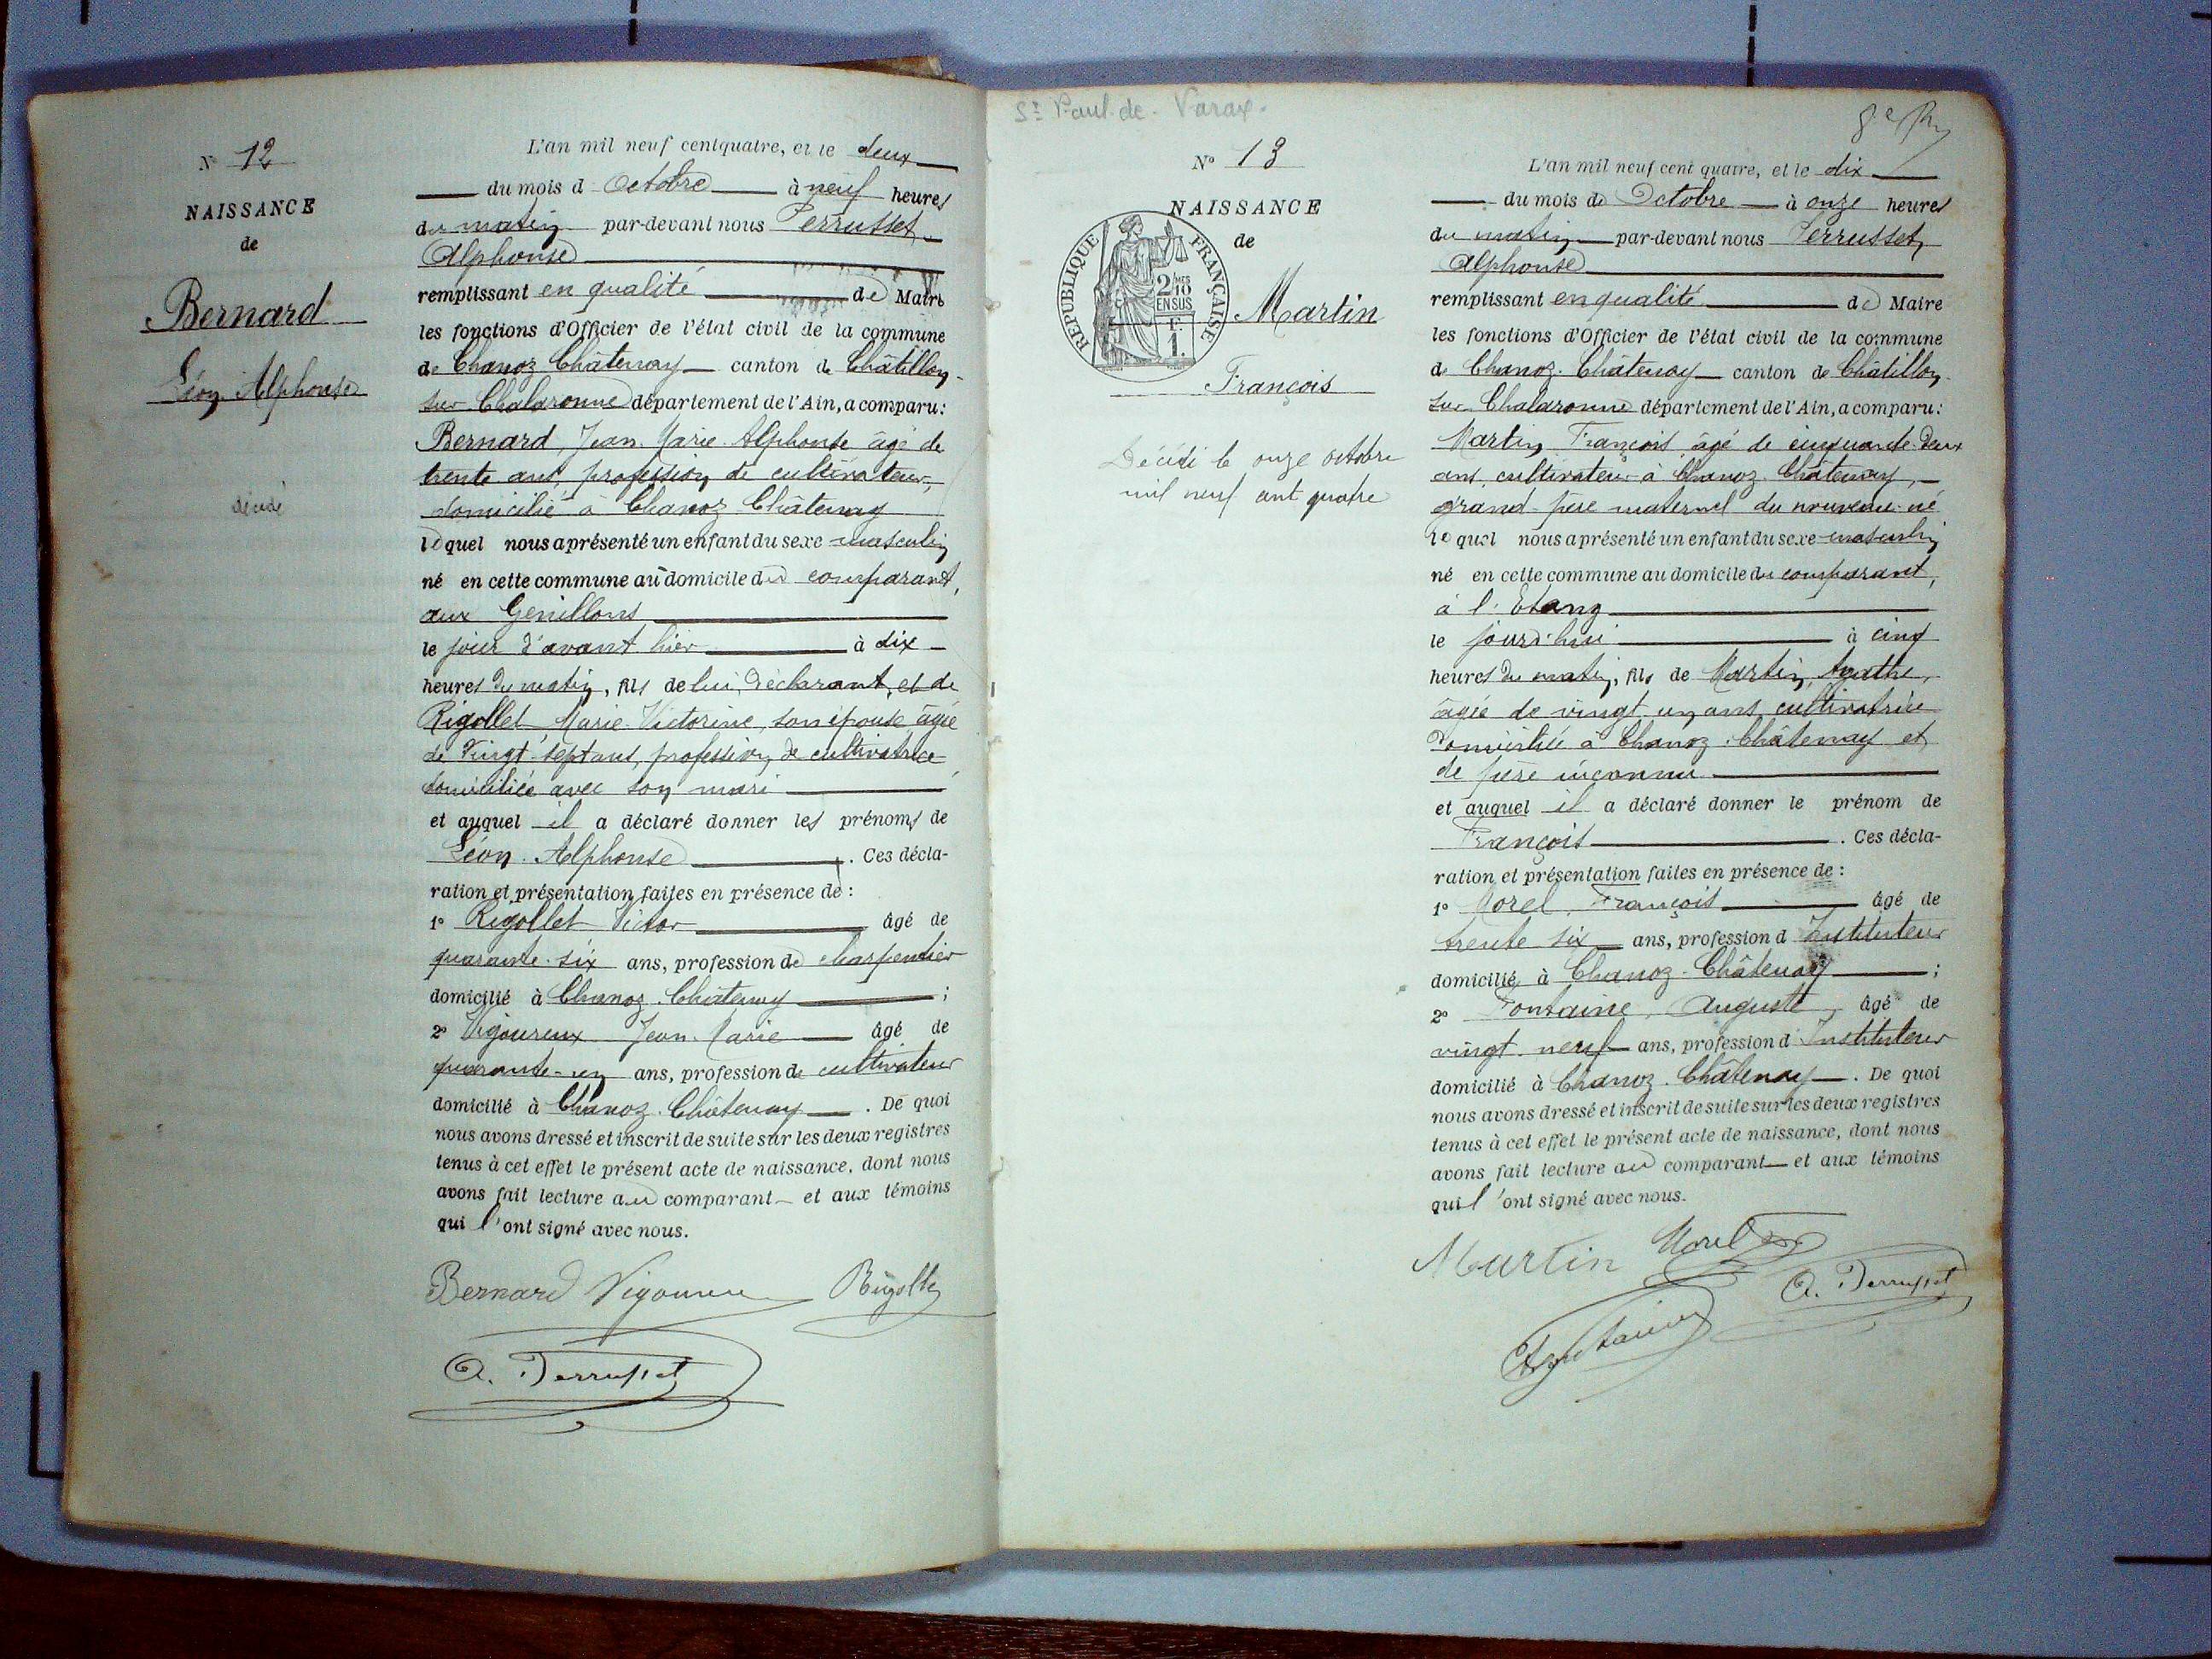 N° 12
NAISSANCE
de
Bernard
Léon Alphonse
décédé
L'an mil neuf centquatre, et le deux
du mois d'Octobre à neuf heures
du matin par-devant nous Perrusset
Alphonse
remplissant en qualité de Maire
les fonctions d'Officier de l'état civil de la commune
de Chanoz Châtenay canton de Châtillon-
sur Chalaronne département de l'Ain, a comparu:
Bernard, Jean Marie Alphonse âgé de
trente ans, profession de cultivateur,
domicilié à Chanoz Châtenay
lequel nous a présenté un enfant du sexe masculin
né en cette commune au domicile du comparant,
aux Genillons
le jour d'avant hier à dix
heures du matin, fils de lui, déclarant, et de
Rigollet Marie Victorine, son épouse âgée
de vingt-sept ans, profession de cultivatrice
domiciliée avec son mari
et auquel il a déclaré donner les prénoms de
Léon Alphonse. Ces décla-
ration et présentation faites en présence de :
1° Rigollet Victor âgé de
quarante-six ans, profession de charpentier
domicilié à Chanoz-Châtenay ;
2° Vigoureux Jean-Marie âgé de
quarante-un ans, profession de cultivateur
domicilié à Chanoz-Châtenay. De quoi
nous avons dressé et inscrit de suite sur les deux registres
tenus à cet effet le présent acte de naissance, dont nous
avons fait lecture au comparant et aux témoins
qui l'ont signé avec nous.
Bernard Vigoureux Rigollet
A. Perrusset
St Paul-de-Varax.
N° 13
NAISSANCE
de
RÉPUBLIQUE FRANÇAISE
2/10mes
EN SUS
1 F.
Martin
François
Décédé le onze octobre
mil neuf cent quatre
L'an mil neuf cent quatre, et le dix
du mois de Octobre à onze heures
du matin par-devant nous Perrusset
Alphonse
remplissant en qualité de Maire
les fonctions d'Officier de l'état civil de la commune
de Chanoz-Châtenay canton de Châtillon-
sur-Chalaronne département de l'Ain, a comparu:
Martin François âgé de cinquante-deux
ans, cultivateur à Chanoz-Châtenay,
grand-père maternel du nouveau-né
lequel nous a présenté un enfant du sexe masculin
né en cette commune au domicile du comparant,
à l'Etang
le jourd'hui à cinq
heures du matin, fils de Martin, Agathe,
âgée de vingt un ans, cultivatrice
domiciliée à Chanoz-Châtenay et
de père inconnu
et auquel il a déclaré donner le prénom de
François. Ces décla-
ration et présentation faites en présence de :
1° Morel, François âgé de
trente six ans, profession d'Instituteur
domicilié à Chanoz-Châtenay ;
2° Fontaine, Auguste, âgé de
vingt-neuf ans, profession d'Instituteur
domicilié à Chanoz-Châtenay. De quoi
nous avons dressé et inscrit de suite sur les deux registres
tenus à cet effet le présent acte de naissance, dont nous
avons fait lecture au comparant et aux témoins
qui l'ont signé avec nous.
Martin Morel
A. Perrusset
Fontaine